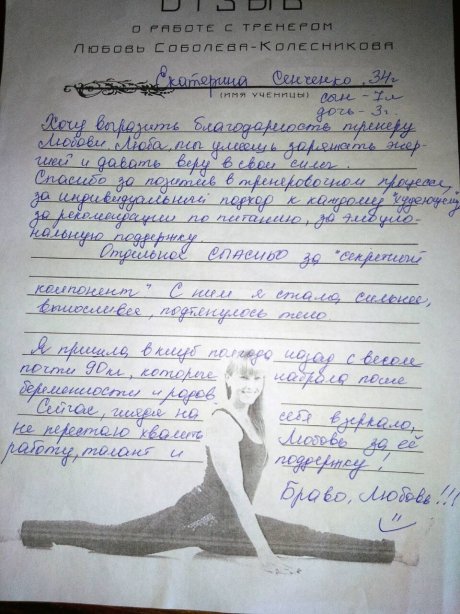 ОТЗЫВ
О РАБОТЕ С ТРЕНЕРОМ
ЛЮБОВЬ СОБОЛЕВА-КОЛЕСНИКОВА
Екатерина Сенченко, 34г
(ИМЯ УЧЕНИЦЫ) сын - 7л
дочь - 3г.
Хочу выразить благодарность тренеру
Любови. Люба, ты умеешь заряжать энер-
гией и давать веру в свои силы.
Спасибо за позитив в тренеровочном процессе,
за индивидуальный подход к каждому "худеющему",
за рекомендации по питанию, за эмоцио-
нальную поддержку.
Отдельное СПАСИБО за "секретный
компонент" С ним я стала сильнее,
выносливее, подтянулось тело
Я пришла в клуб полгода назад с весом
почти 90кг, которые набрала после
беременности и родов.
Сейчас, глядя на себя в зеркало,
не перестаю хвалить Любовь за её
работу, талант и поддержку!
Браво, Любовь!!!